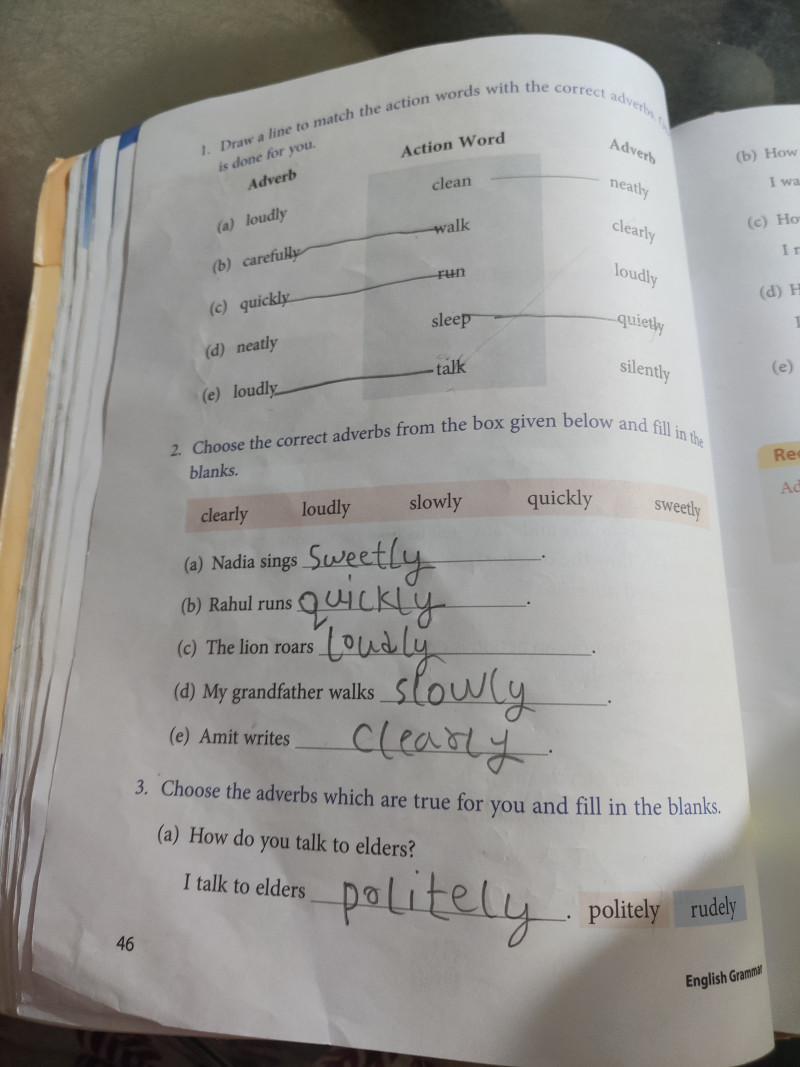 1. Draw a line to match the action words with the correct adverbs.
is done for you.
Adverb Action Word Adverb
(a) loudly clean neatly
(b) carefully walk clearly
(c) quickly run loudly
(d) neatly sleep quietly
(e) loudly talk silently
2. Choose the correct adverbs from the box given below and fill in the
blanks.
clearly loudly slowly quickly sweetly
(a) Nadia sings Sweetly.
(b) Rahul runs quickly.
(c) The lion roars loudly.
(d) My grandfather walks slowly.
(e) Amit writes Clearly.
3. Choose the adverbs which are true for you and fill in the blanks.
(a) How do you talk to elders?
I talk to elders politely. politely rudely
46
English Grammar
(b) How
I wa
(c) Ho
I r
(d) H
I
(e)
Re
Ad